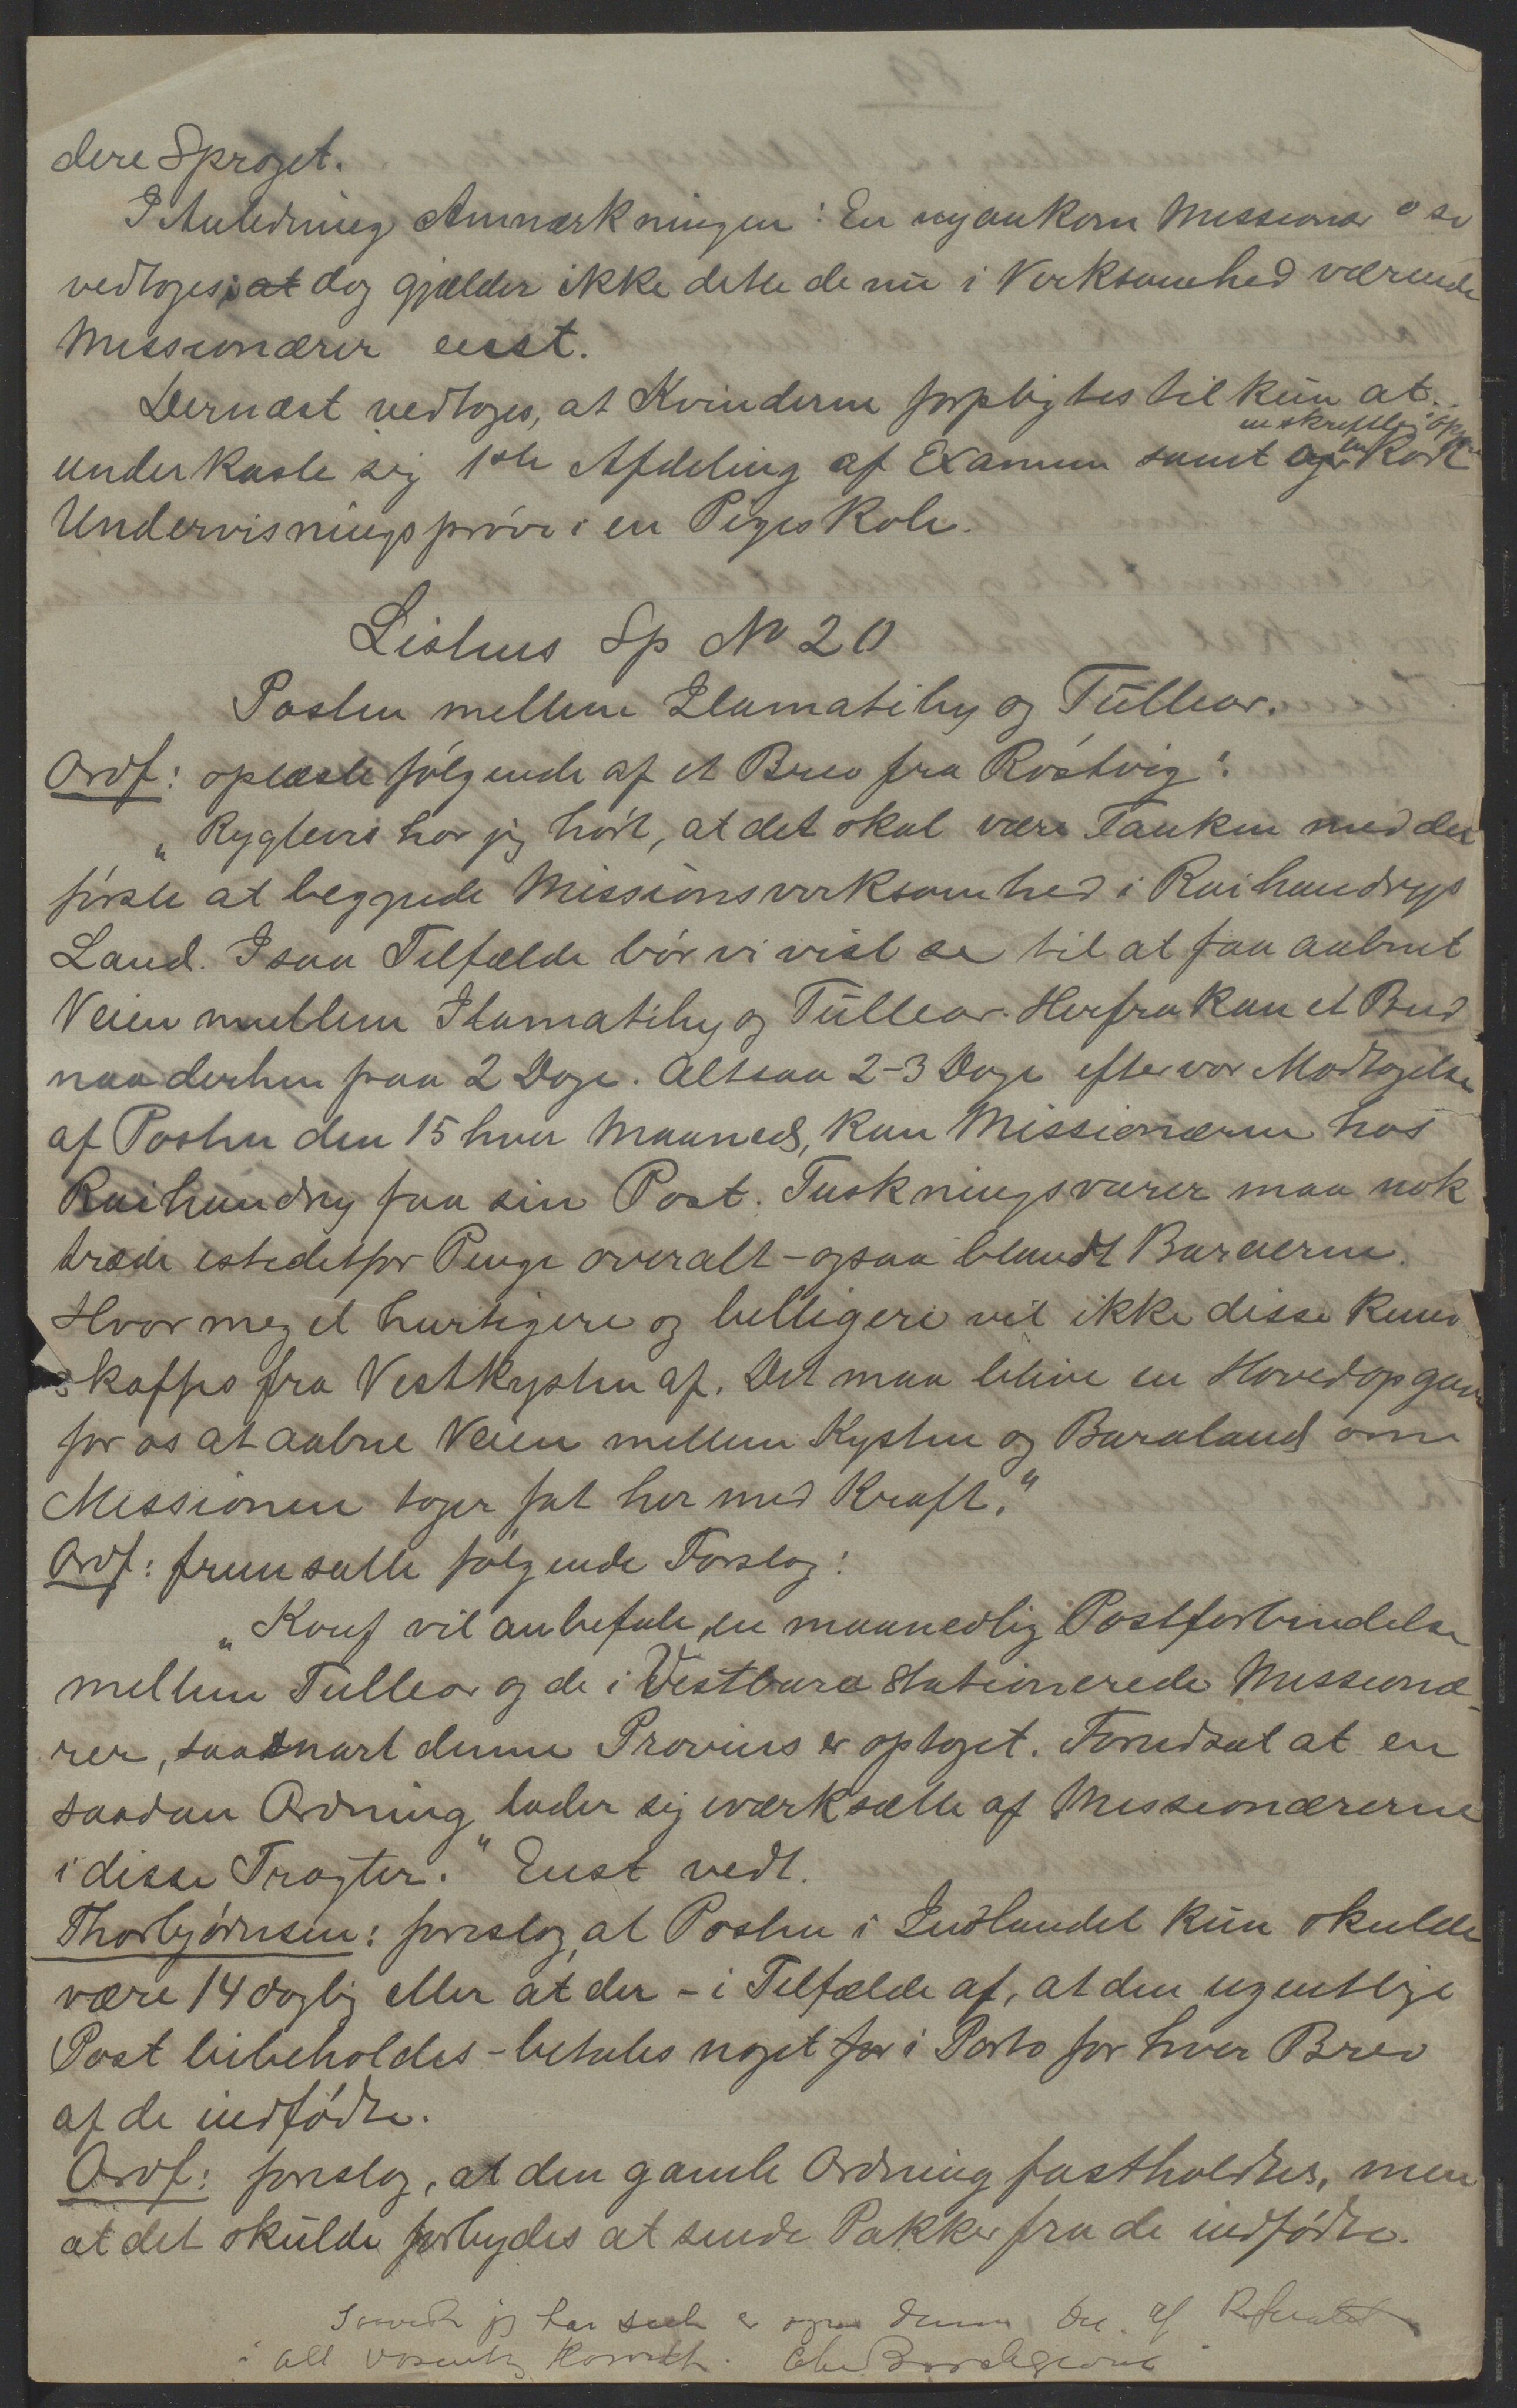 dere Sproget.
I Anledning Anmærkningen: "En nyankom Missionær" o sv
vedtoges; at dog gjælder ikke dette de nu i Verksomhed værende
Missionærer enst.
Dernæst vedtoges, at Kvinderne forpligtes til kun at
en skriftlig Opg
underkaste sig 1ste Afdeling af Examen samt og en kort
Undervisningsprøve i en Pigeskole.
Listens Sp No 20
Posten mellem Ilamatihy og Tullear.
Ordf: oplæste følgende af et Brev fra Røstvig:
„Rygtevis har jeg hørt, at det skal være Tanken med det
første at begynde Missionsverksomhed i Raihandrys
Land. I saa Tilfælde bør vi vist se til at faa aabnet
Veien mellem Ilamatihy og Tullear. Herfra kan et Bud
naa derhen paa 2 Dage. Altsaa 2-3 Dage efter vor Modtagelse
af Posten den 15 hver Maaned, kan Missionæren hos
Raihandry faa sin Post. Tuskningsvarer maa nok
træde istedetfor Penge overalt - ogsaa blandt Baraerne.
Hvor meget hurtigere og billigere vil ikke disse kunne
skaffes fra Vestkysten af. Det maa blive en Hovedopgave
for os at aabne Veien mellem Kysten og Baraland om
Missionen tager fat her med Kraft."
Ordf: fremsatte følgende Forslag:
„Konf vil anbefale en maanedlig Postforbindelse
mellem Tullear og de i Vestbara stationerede Missionæ-
rer, saasnart denne Provins er optaget. Forudsat at en
saadan Ordning lader sig iværksætte af Missionærerne
i disse Tragter." Enst vedt.
Thorbjørnsen: foreslog, at Posten i Indlandet kun skulde
være 14 daglig eller at der - i Tilfælde af, at den ugentlige
Post bibeholdes - betales noget for i Porto for hver Brev
af de indfødte.
Ordf: foreslog, at den gamle Ordning fastholdtes, men
at det skulde forbydes at sende Pakker fra de indfødte.
Saavidt jeg har seet er ogsaa denne Del af Referatet
i alt væsentlig korrekt. Chr Borchgrevink